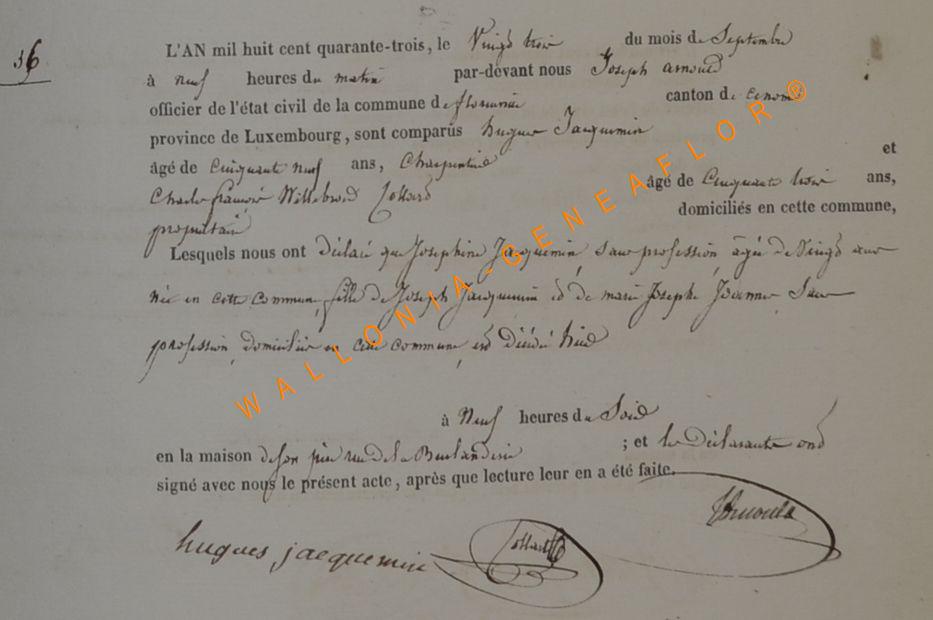 36
L'AN mil huit cent quarante-trois, le Vingt trois du mois de Septembre
à neuf heures du matin par-devant nous Joseph arnould
officier de l'état civil de la commune de florenville canton de
province de Luxembourg, sont comparus hugues Jacquemin
âgé de Cinquante neuf ans, Charpentier et
Charles françois Willebrord Collard âgé de Cinquante trois ans,
propriétaire domiciliés en cette commune,
Lesquels nous ont déclaré que Josephine Jacquemin, sans profession, âgée de Vingt ans
née en cette commune, fille de Joseph Jacquemin et de marie Josephe Sans
profession, domiciliés en cette commune, est décédée hier
à Neuf heures du Soir
en la maison de son père rue de la ; et les déclarants ont
signé avec nous le présent acte, après que lecture leur en a été faite.
hugues jacquemin Collard
WALLONIA-GENEAFLOR®